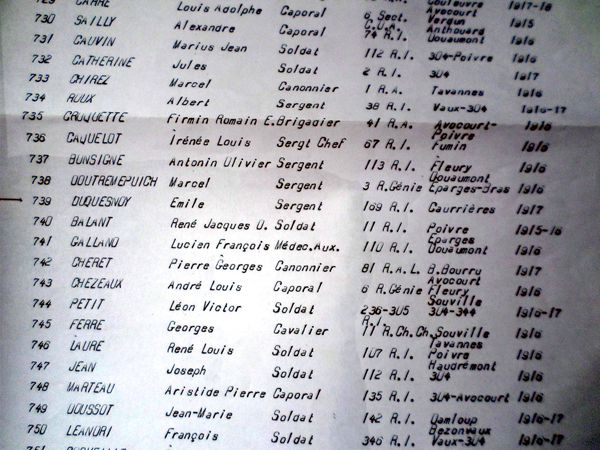 729 CARRE Louis Adolphe Caporal Couleuvre 1917-18
730 SAILLY Alexandre Caporal 6 Sect. C.O.A. Avocourt Verdun 1915
731 GAUVIN Marius Jean Soldat 74 R.I. Douaumont 1916
732 CATHERINE Jules Soldat 112 R.I. 304-Poivre 1916
733 CHIREZ Marcel Canonnier 2 R.I. 304 1917
734 ROUX Albert Sergent 1 R.A. Tavannes 1916
735 CROQUETTE Firmin Romain E. Brigadier 38 R.I. Vaux-304 1916-17
736 CAQUELOT Irénée Louis Sergt Chef 41 R.A. Avocourt-Poivre 1916
737 BONSIGNE Antonin Olivier Sergent 67 R.I. Fumin 1916
738 DOUTREMEPUICH Marcel Sergent 113 R.I. Fleury Douaumont 1916
739 DUQUESNOY Emile Sergent 3 R.Génie Eparges-Bras 1916
740 BALANT René Jacques O. Soldat 169 R.I. Caurrières 1917
741 GALLAND Lucien François Médec.Aux. 11 R.I. Poivre Eparges 1915-16
742 CHERET Pierre Georges Canonnier 110 R.I. Douaumont 1916
743 CHEZEAUX André Louis Caporal 81 R.A.L. B.Bourru Avocourt 1917
744 PETIT Léon Victor Soldat 6 R.Génie Fleury Souville 1916
745 FERRE Georges Cavalier 236-305 R.I. 304-344 1916-17
746 LAURE René Louis Soldat 11 R.Ch.Ch. Souville Tavannes 1916
747 JEAN Joseph Soldat 107 R.I. Poivre Haudremont 1916
748 MARTEAU Aristide Pierre Caporal 112 R.I. 304 1916
749 DOUSSOT Jean-Marie Soldat 135 R.I. 304-Avocourt 1916
750 LEANDRI François Soldat 142 R.I. Damloup Bezonvaux 1916-17
346 R.I. Vaux-304 1916-17